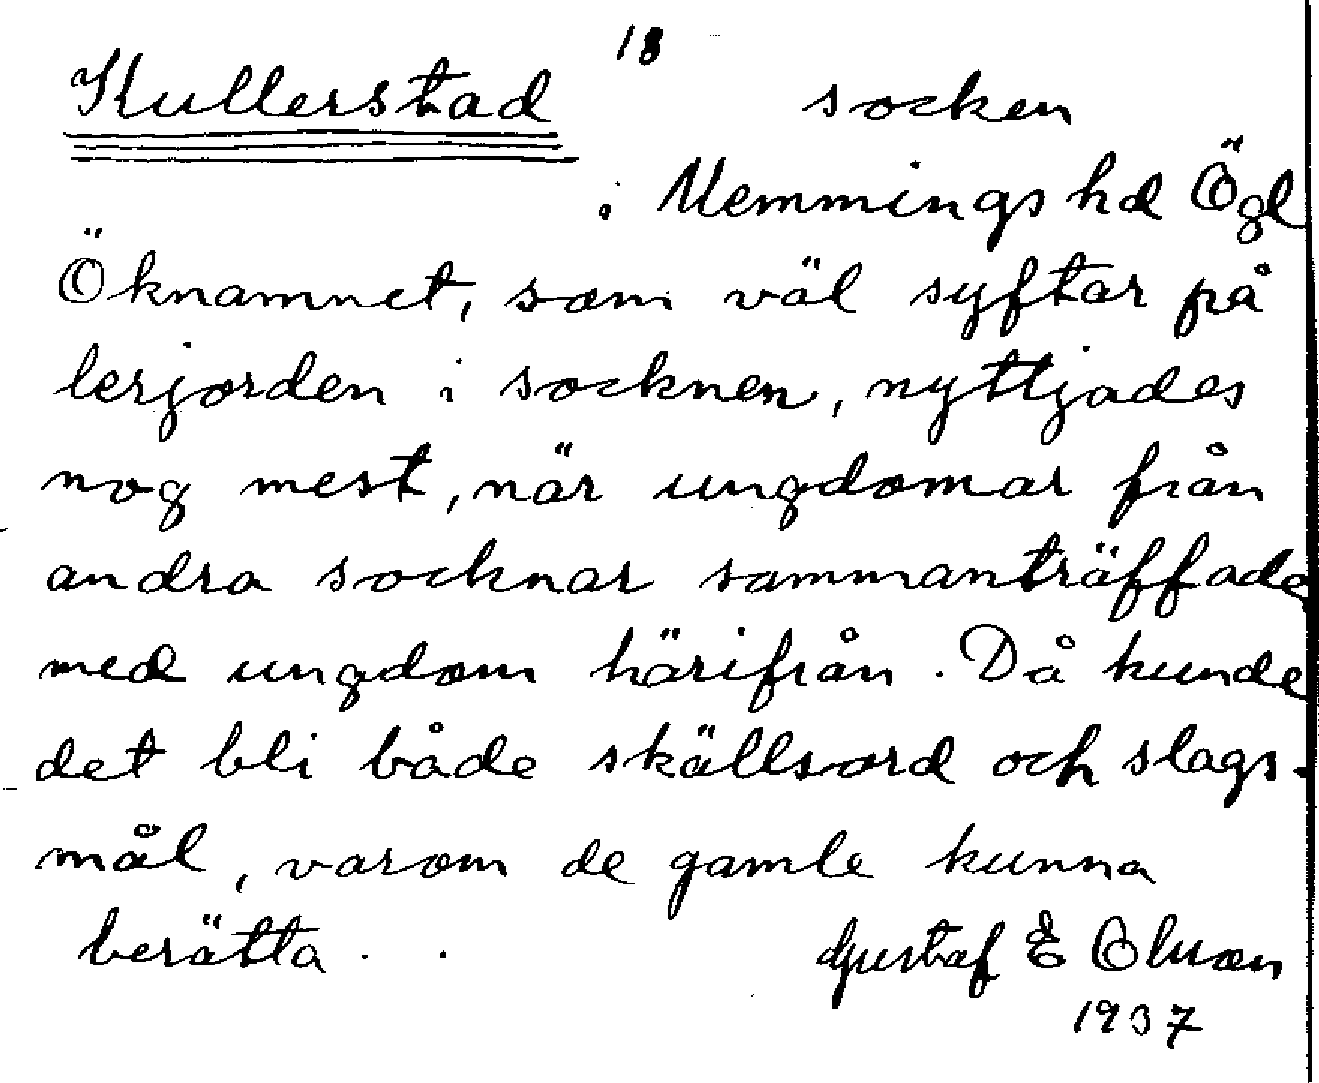 18
Kullerstad socken
i Memmings hd Ögl
Öknamnet, som väl syftar på
lerjorden i socknen, nyttjades
nog mest, när ungdomar från
andra socknar sammanträffade
med ungdom härifrån. Då kunde
det bli både skällsord och slags-
mål, varom de gamle kunna
berätta . .
Gustaf E Olson
1937